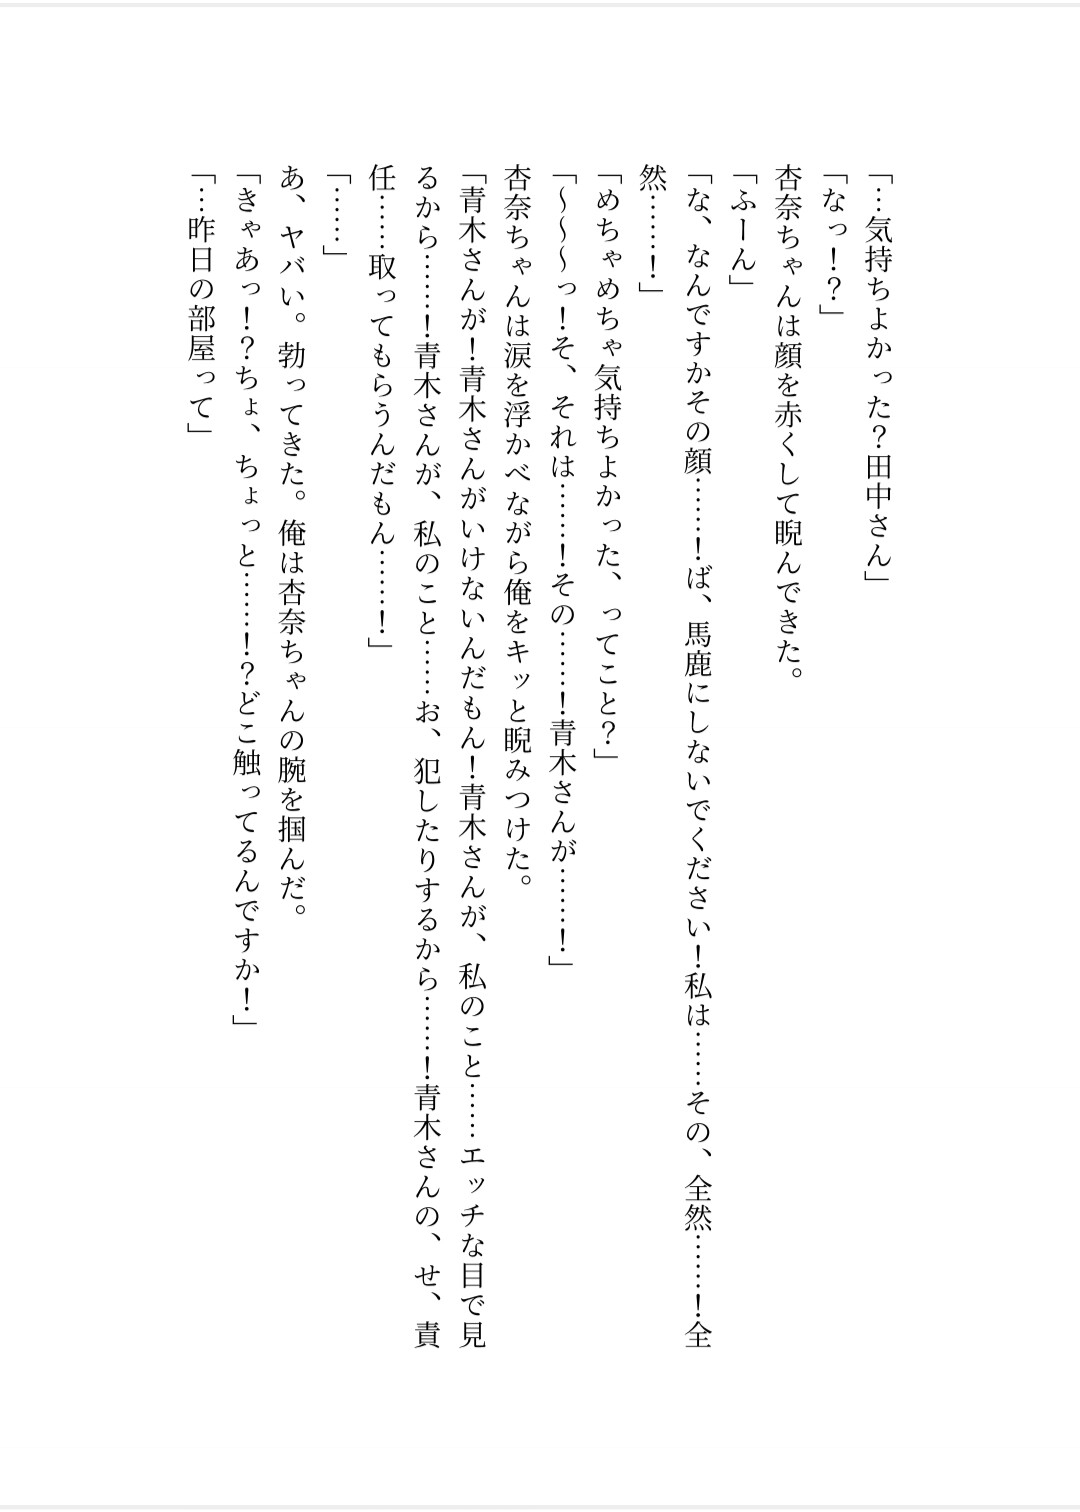 「…気持ちよかった？田中さん」
「なっ！？」
杏奈ちゃんは顔を赤くして睨んできた。
「ふーん」
「な、なんですかその顔……！ば、馬鹿にしないでください！私は……その、全然……！全
然……！」
「めちゃめちゃ気持ちよかった、ってこと？」
「～～～っ！そ、それは……！その……！青木さんが……！」
杏奈ちゃんは涙を浮かべながら俺をキッと睨みつけた。
「青木さんが！青木さんがいけないんだもん！青木さんが、私のこと……エッチな目で見
るから……！青木さんが、私のこと……お、犯したりするから……！青木さんの、せ、責
任……取ってもらうんだもん……！」
「……」
あ、ヤバい。勃ってきた。俺は杏奈ちゃんの腕を掴んだ。
「きゃあっ！？ちょ、ちょっと……！？どこ触ってるんですか！」
「…昨日の部屋って」